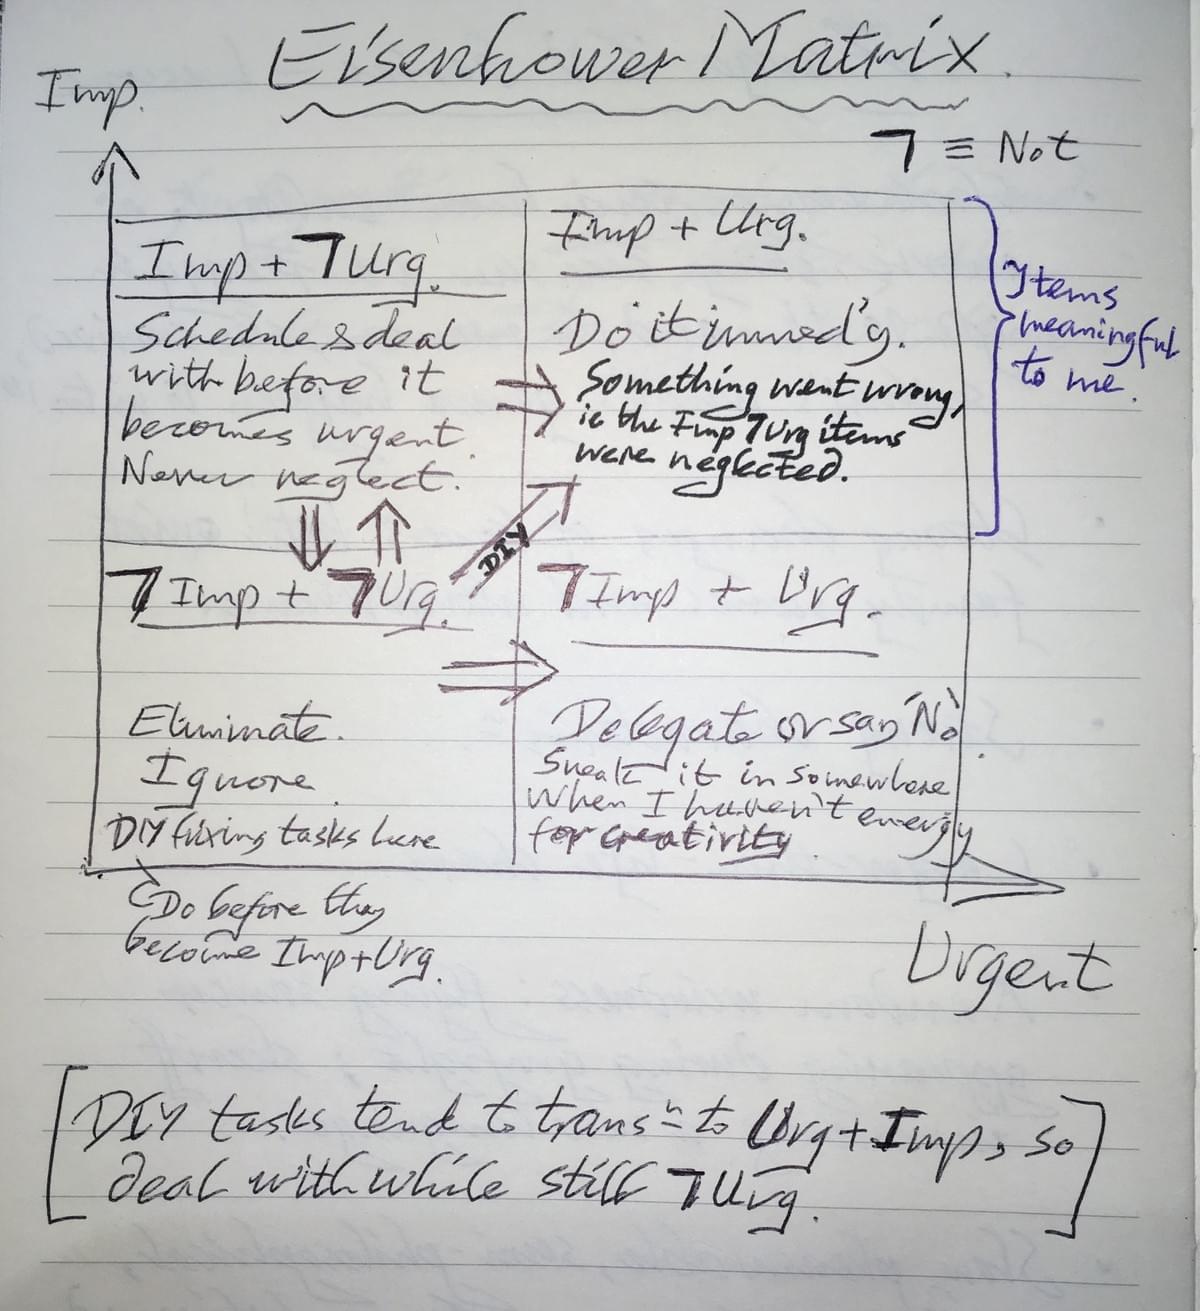 Eisenhower Matrix.
Imp.
¬ ≡ Not
Imp + ¬Urg.
Schedule & deal
with before it
becomes urgent.
Never neglect.
Imp + Urg.
Do it immed'y.
Something went wrong,
ie the Imp ¬Urg items
were neglected.
Items
meaningful
to me.
DIY
¬Imp + ¬Urg.
Eliminate.
Ignore.
DIY fixing tasks here
Do before they
become Imp+Urg.
¬Imp + Urg.
Delegate or say "No".
Sneak it in somewhere
when I haven't energy
for creativity.
Urgent
[DIY tasks tend to trans⁻ⁿ to Urg+Imp, so
deal with while still ¬Urg.]